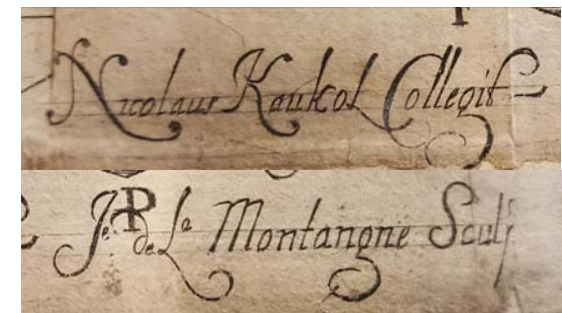 Nicolaus Kaukol Collegit
Je. P de La Montangne Sculp